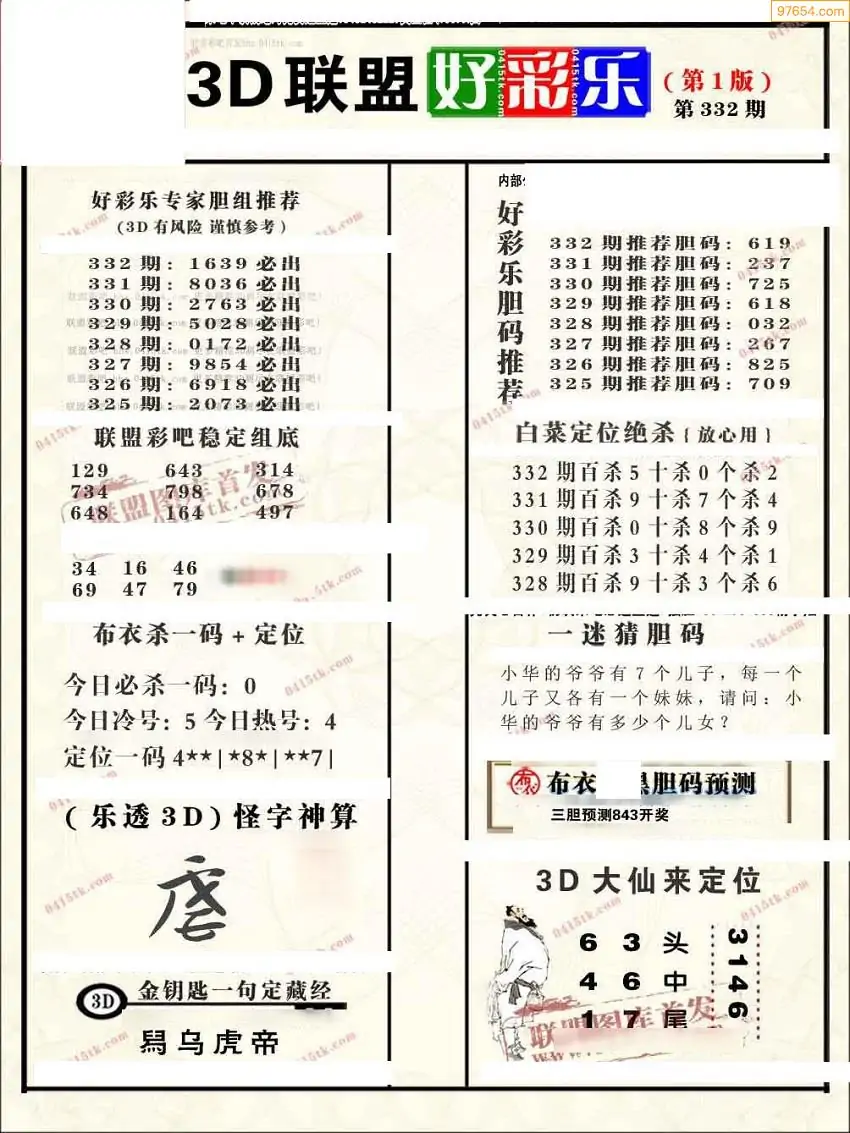 97654.com
3D联盟好彩乐
(第1版)
第332期
好彩乐专家胆组推荐
(3D有风险 谨慎参考)
332期：1639必出
331期：8036必出
330期：2763必出
329期：5028必出
328期：0172必出
327期：9854必出
326期：6918必出
325期：2073必出
联盟彩吧稳定组底
129 643 314
734 798 678
648 164 497
34 16 46
69 47 79
布衣杀一码+定位
今日必杀一码：0
今日冷号：5 今日热号：4
定位一码4**|*8*|**7|
(乐透3D)怪字神算
3D 金钥匙一句定藏经
乌虎帝
内部
好彩乐胆码推荐
332期推荐胆码：619
331期推荐胆码：237
330期推荐胆码：725
329期推荐胆码：618
328期推荐胆码：032
327期推荐胆码：267
326期推荐胆码：825
325期推荐胆码：709
白菜定位绝杀{放心用}
332期百杀5十杀0个杀2
331期百杀9十杀7个杀4
330期百杀0十杀8个杀9
329期百杀3十杀4个杀1
328期百杀9十杀3个杀6
一迷猜胆码
小华的爷爷有7个儿子，每一个
儿子又各有一个妹妹，请问：小
华的爷爷有多少个儿女？
布衣 胆码预测
三胆预测843开奖
3D大仙来定位
6 3 头
4 6 中
1 7 尾
3146
联盟图库首发
0415tk.com